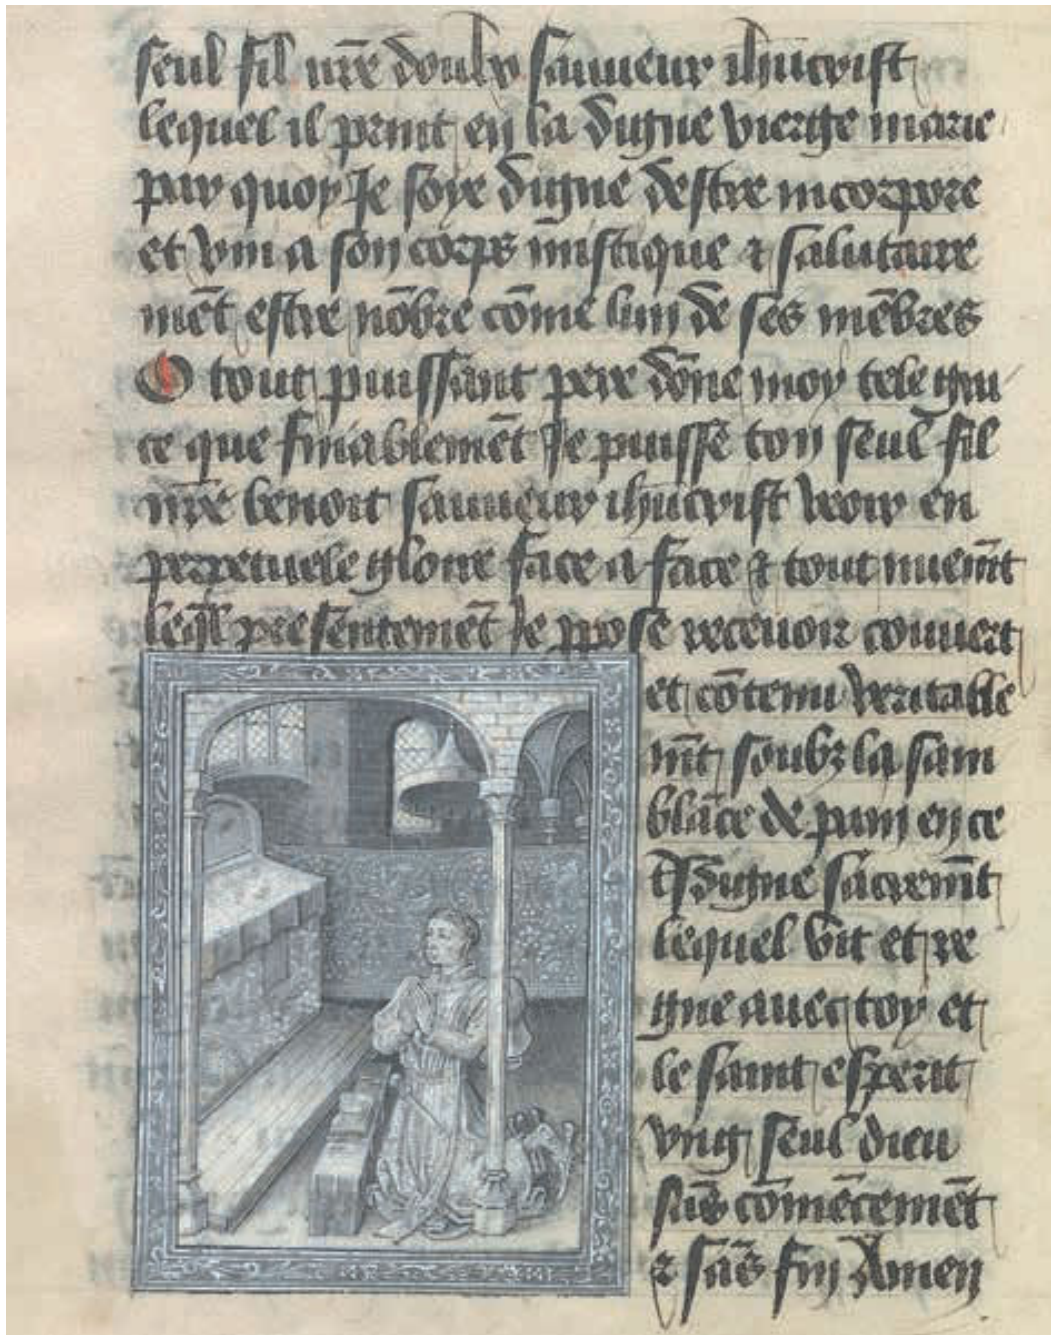 seul fil nr̄e doulx sauueur ih̄ucrist
lequel il print en la digne vierge marie
par quoy Je soye digne destre incorpore
et vni a son corps mistique ⁊ salutaire
mēt estre nōbre cōme lun de ses mēbres
O tout puissant pere dōne moy tele gra
ce que finablemēt Je puisse ton seul fil
nr̄e benoit sauueur ih̄ucrist veoir en
perpetuele gloire face a face ⁊ tout nuem̄t
leq̄l presentemēt Je ppose receuoir couuert
et cōtenu veritable
m̄t soubz la sam
blāce de pain en ce
digne sacrem̄t
lequel vit et re
gne auec toy et
le saint esperit
vng seul dieu
sās cōmēcemēt
⁊ sās fin Amen